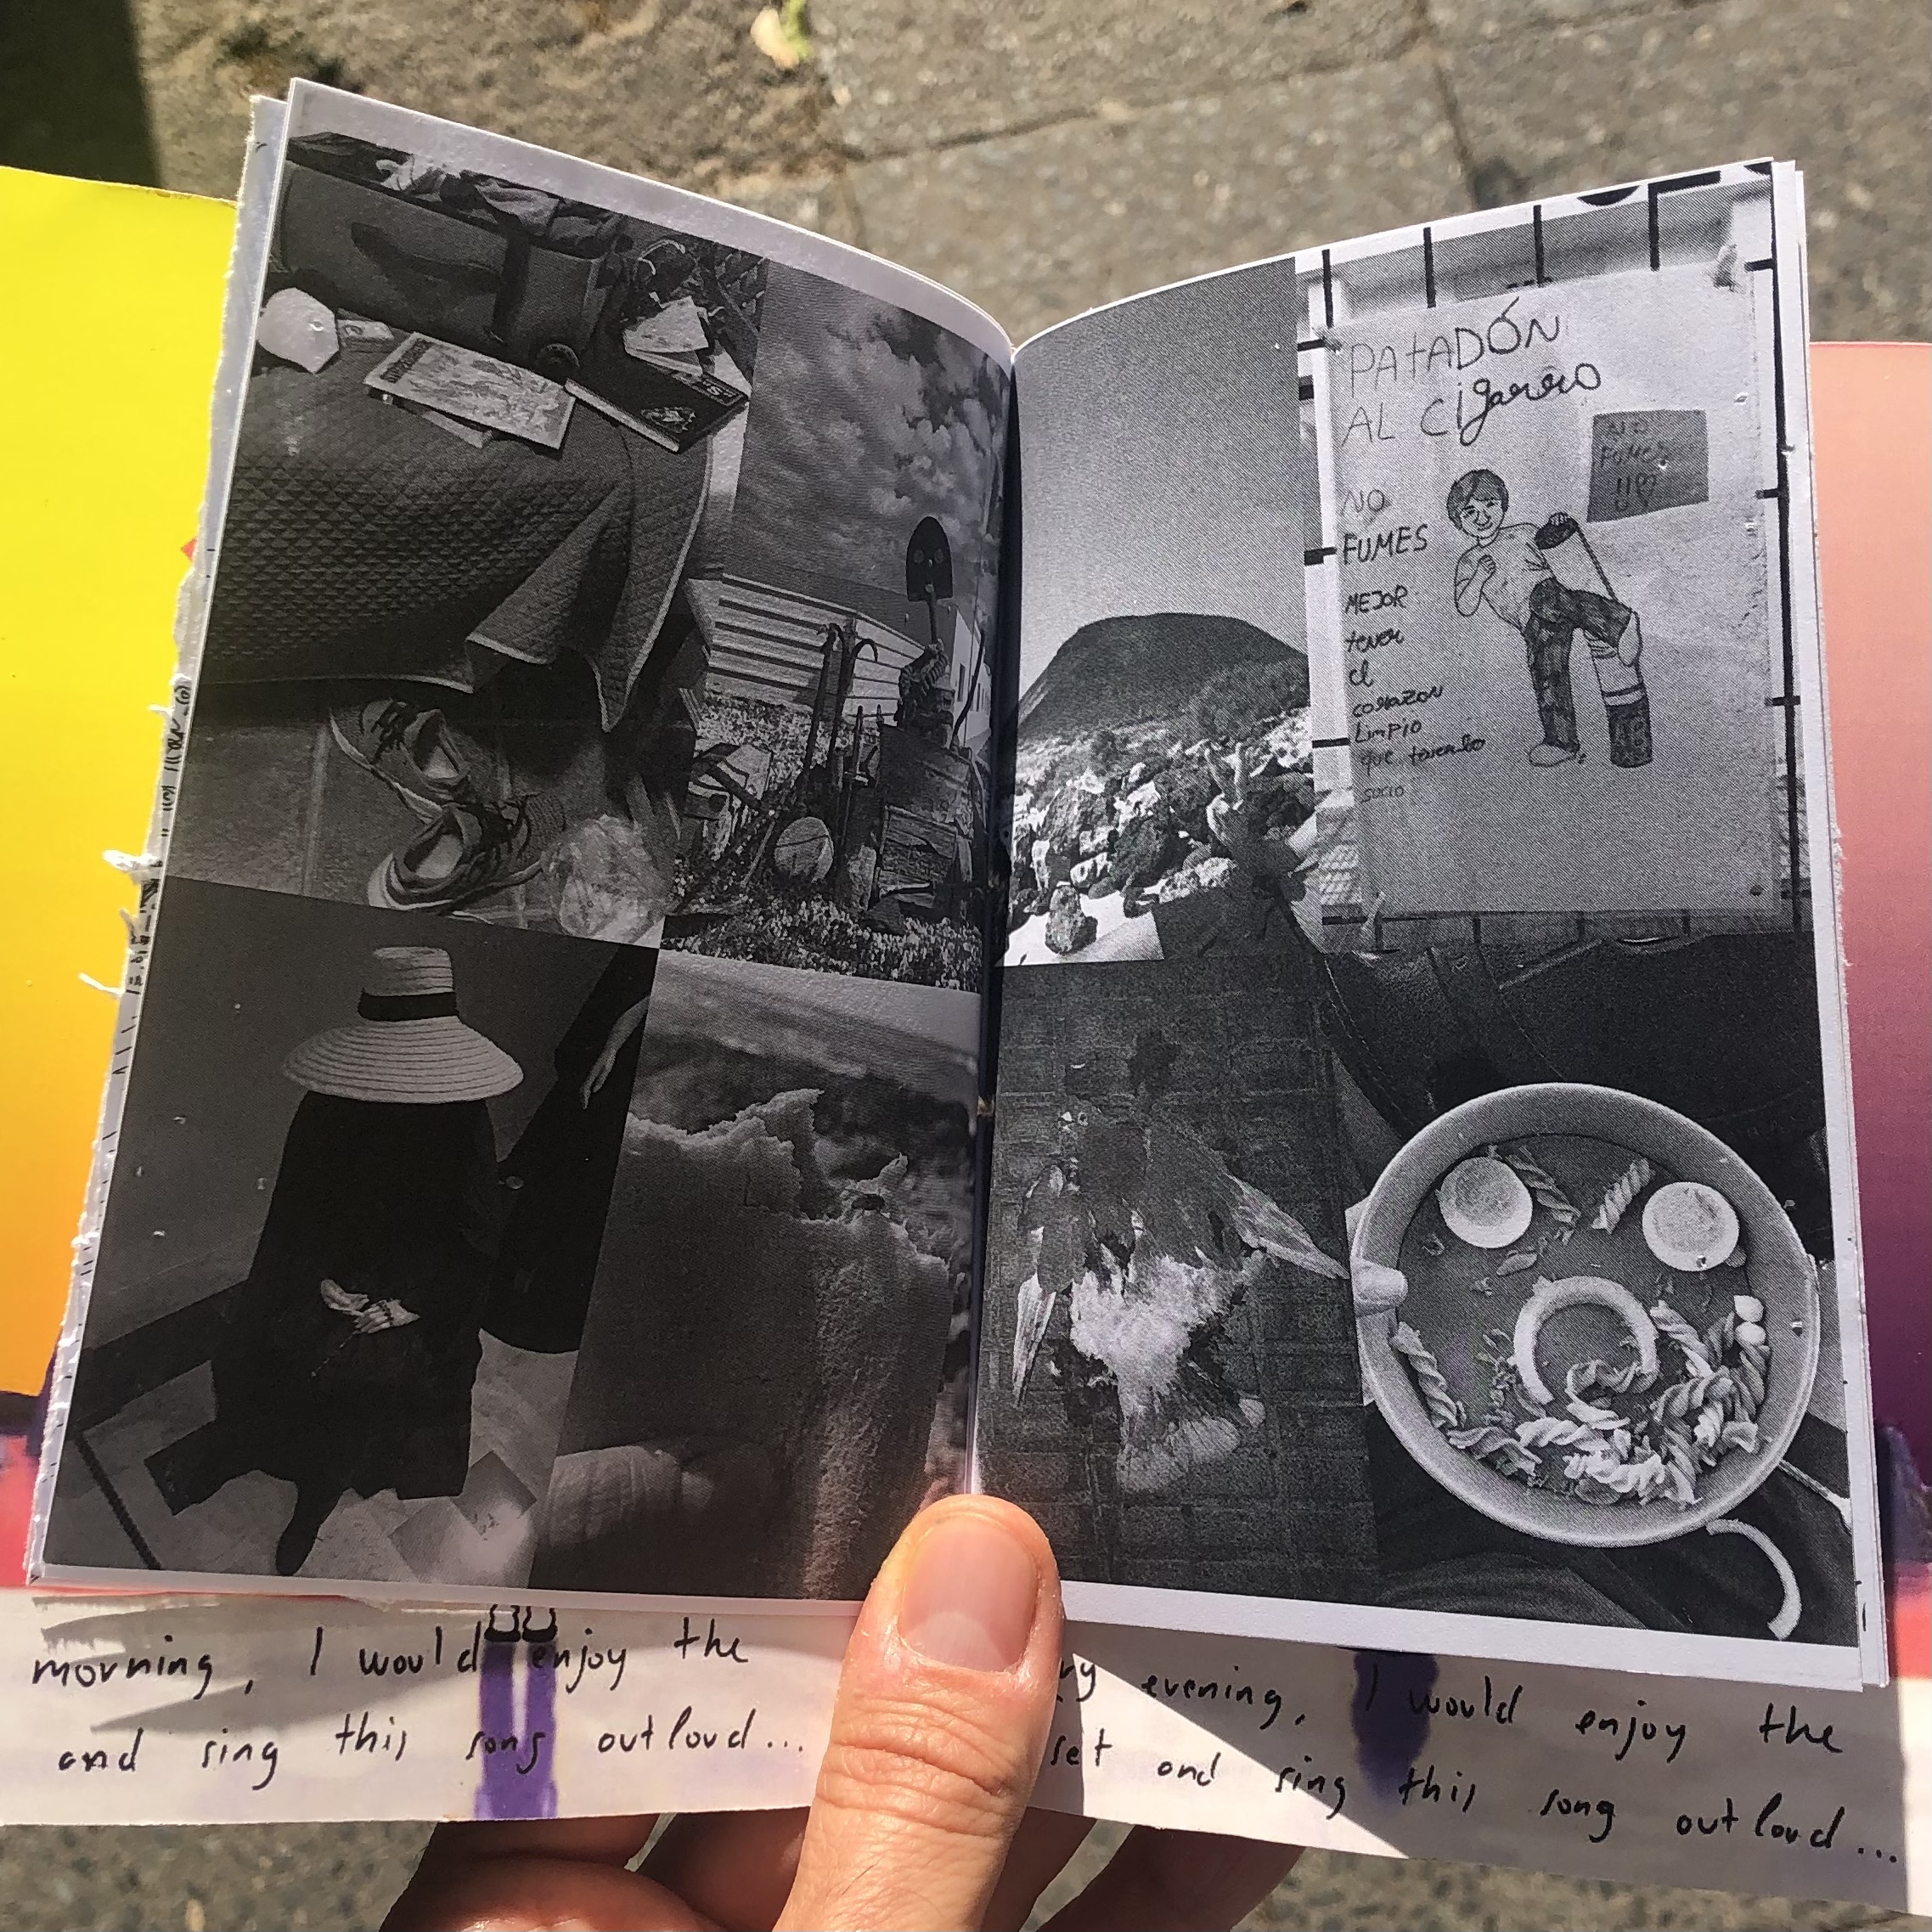 PATADÓN
AL CIgarro
NO
FUMES
!!
NO
FUMES
MEJOR
tener
el
corazon
Limpio
que tenerlo
sucio
morning, I would enjoy the
and sing this song outloud...
ry evening, I would enjoy the
set and sing this song outloud...